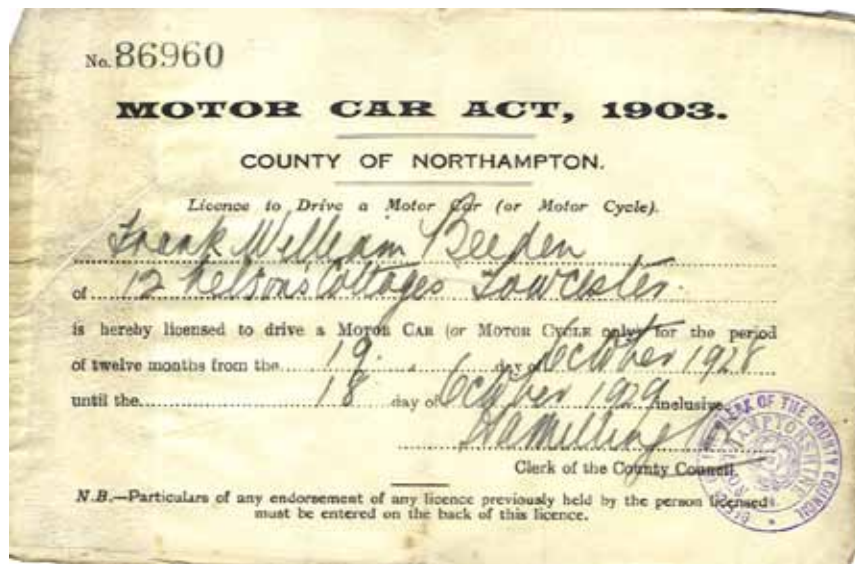 No. 86960
MOTOR CAR ACT, 1903.
COUNTY OF NORTHAMPTON.
Licence to Drive a Motor Car (or Motor Cycle).
Frank William Beeden
of 12 Nelson's Cottages Towcester.
is hereby licensed to drive a MOTOR CAR (or MOTOR CYCLE only) for the period
of twelve months from the 19 day of October 1928
until the 18 day of October 1929 inclusive
Clerk of the County Council.
N.B.—Particulars of any endorsement of any licence previously held by the person licensed
must be entered on the back of this licence.
CLERK OF THE COUNTY COUNCIL
NORTHAMPTONSHIRE